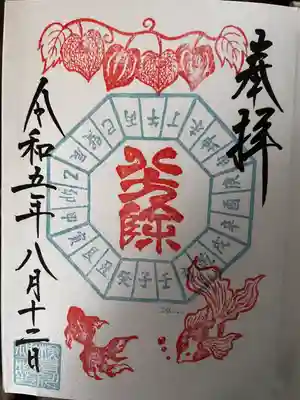 奉拝
八方除
巳丙午丁未坤申庚酉辛戌乾亥壬子癸丑艮寅甲卯乙辰巽
令和五年八月十二日